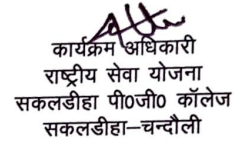 कार्यक्रम अधिकारी
राष्ट्रीय सेवा योजना
सकलडीहा पी0जी0 कॉलेज
सकलडीहा–चन्दौली